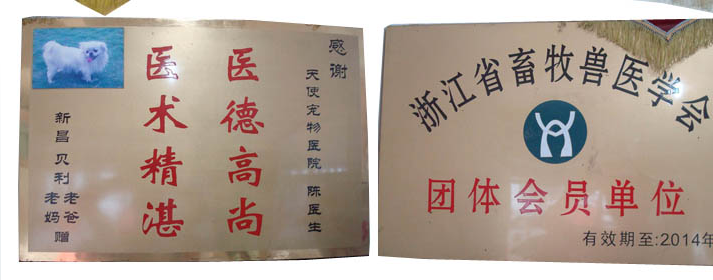 感谢
天使宠物医院 陈医生
医德高尚
医术精湛
新昌贝利老爸
老妈赠
浙江省畜牧兽医学会
团体会员单位
有效期至:2014年